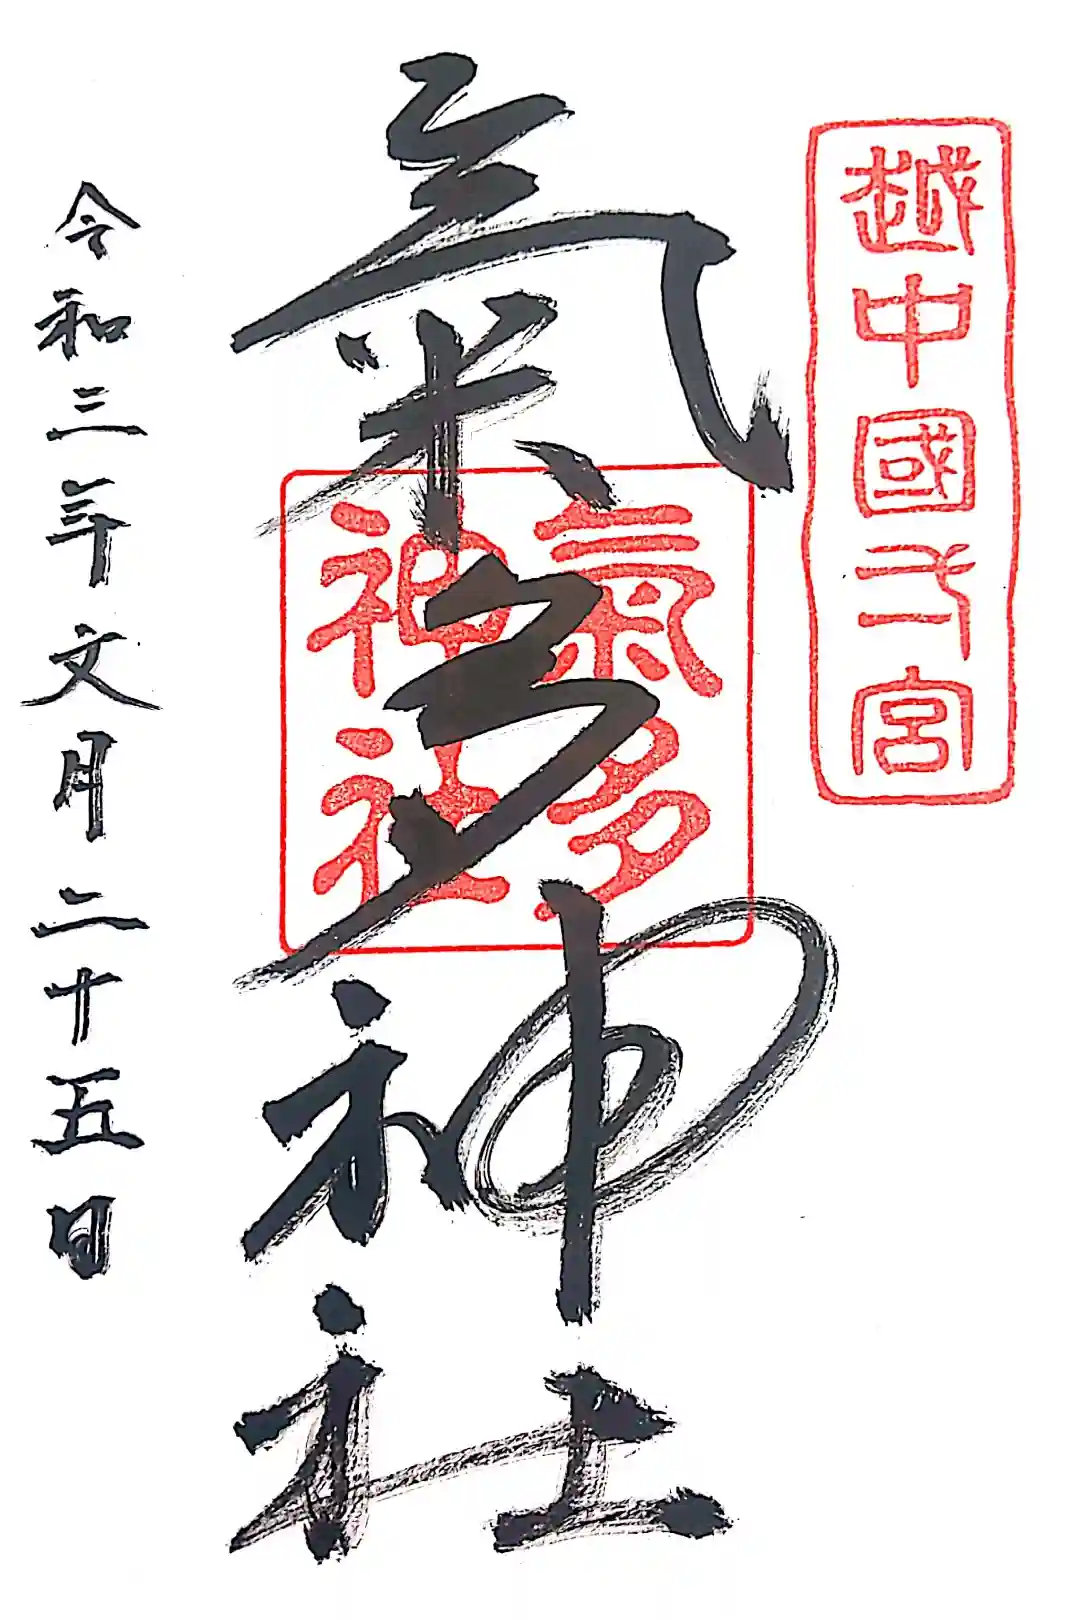 越中國弌宮
氣多神社
氣多
神社
令和三年文月二十五日